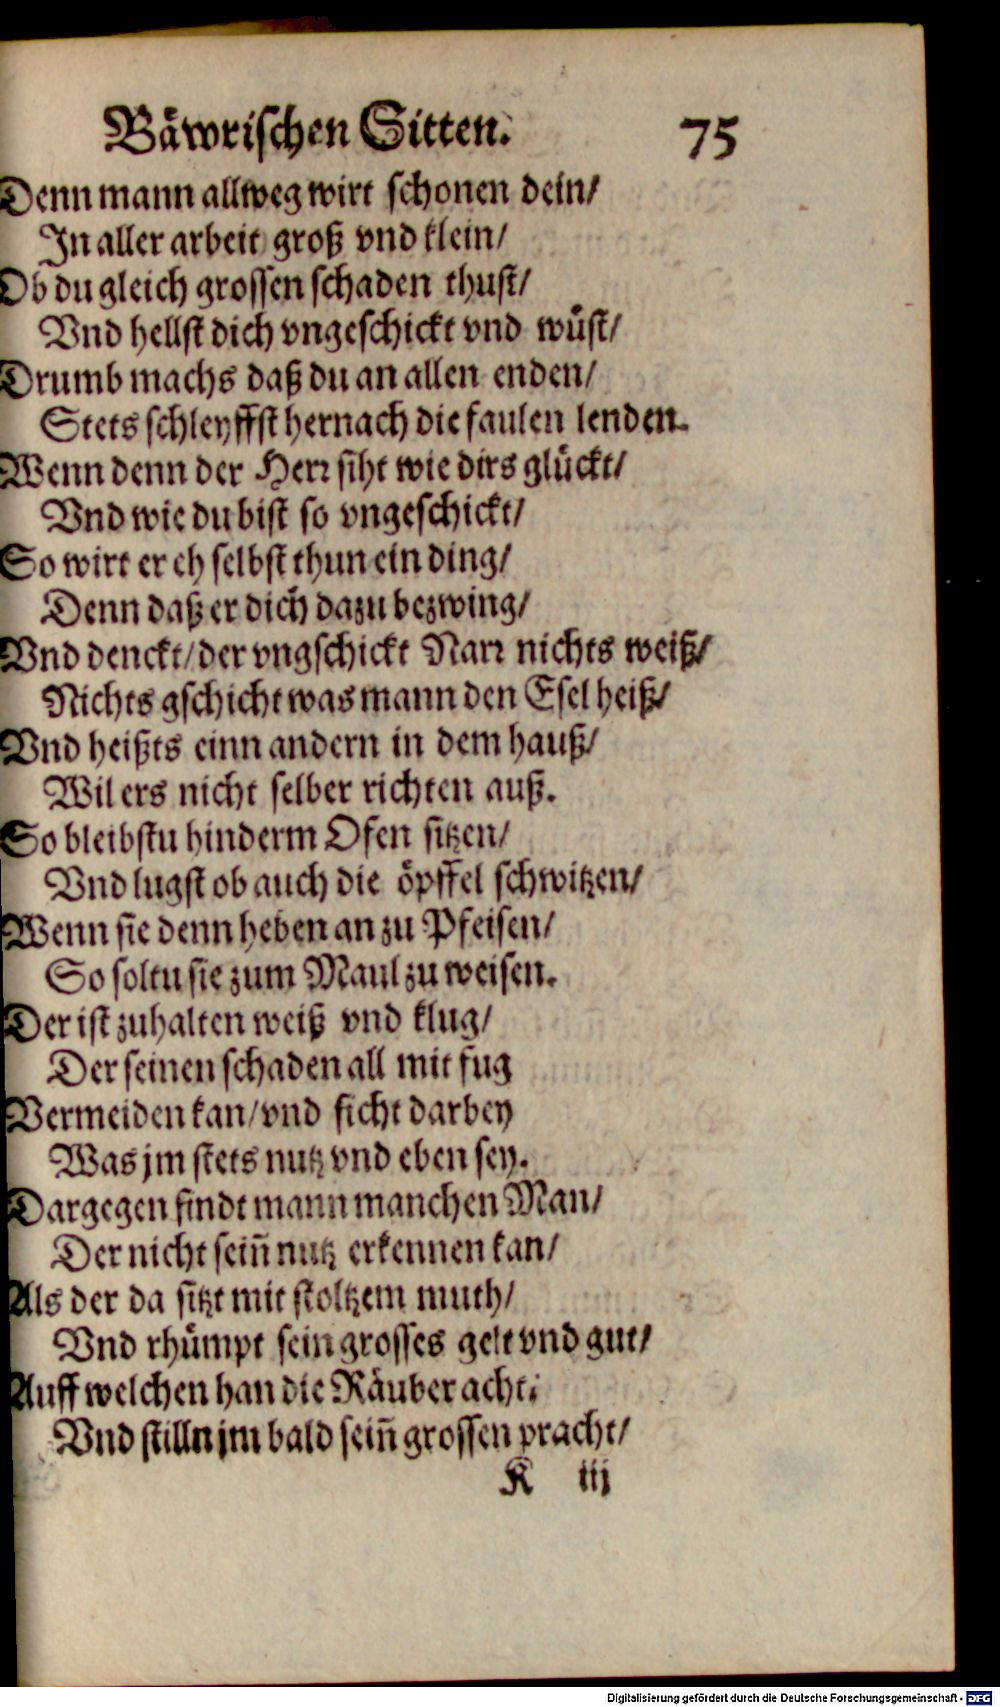 Bäwrischen Sitten. 75
Denn mann allweg wirt schonen dein/
In aller arbeit groß vnd klein/
Ob du gleich grossen schaden thust/
Vnd hellst dich vngeschickt vnd wüst/
Drumb machs daß du an allen enden/
Stets schleyffst hernach die faulen lenden.
Wenn denn der Herr siht wie dirs glückt/
Vnd wie du bist so vngeschickt/
So wirt er eh selbst thun ein ding/
Denn daß er dich dazu bezwing/
Vnd denckt/ der vngschickt Narr nichts weiß/
Nichts gschicht was mann den Esel heiß/
Vnd heißts einn andern in dem hauß/
Wil ers nicht selber richten auß.
So bleibstu hinderm Ofen sitzen/
Vnd lugst ob auch die öpffel schwitzen/
Wenn sie denn heben an zu Pfeisen/
So soltu sie zum Maul zu weisen.
Der ist zuhalten weiß vnd klug/
Der seinen schaden all mit fug
Vermeiden kan/ vnd sicht darbey
Was jm stets nutz vnd eben sey.
Dargegen findt mann manchen Man/
Der nicht sein̄ nutz erkennen kan/
Als der da sitzt mit stoltzem muth/
Vnd rhümpt sein grosses gelt vnd gut/
Auff welchen han die Räuber acht:
Vnd stilln jm bald sein̄ grossen pracht/
K iij
Digitalisierung gefördert durch die Deutsche Forschungsgemeinschaft - DFG